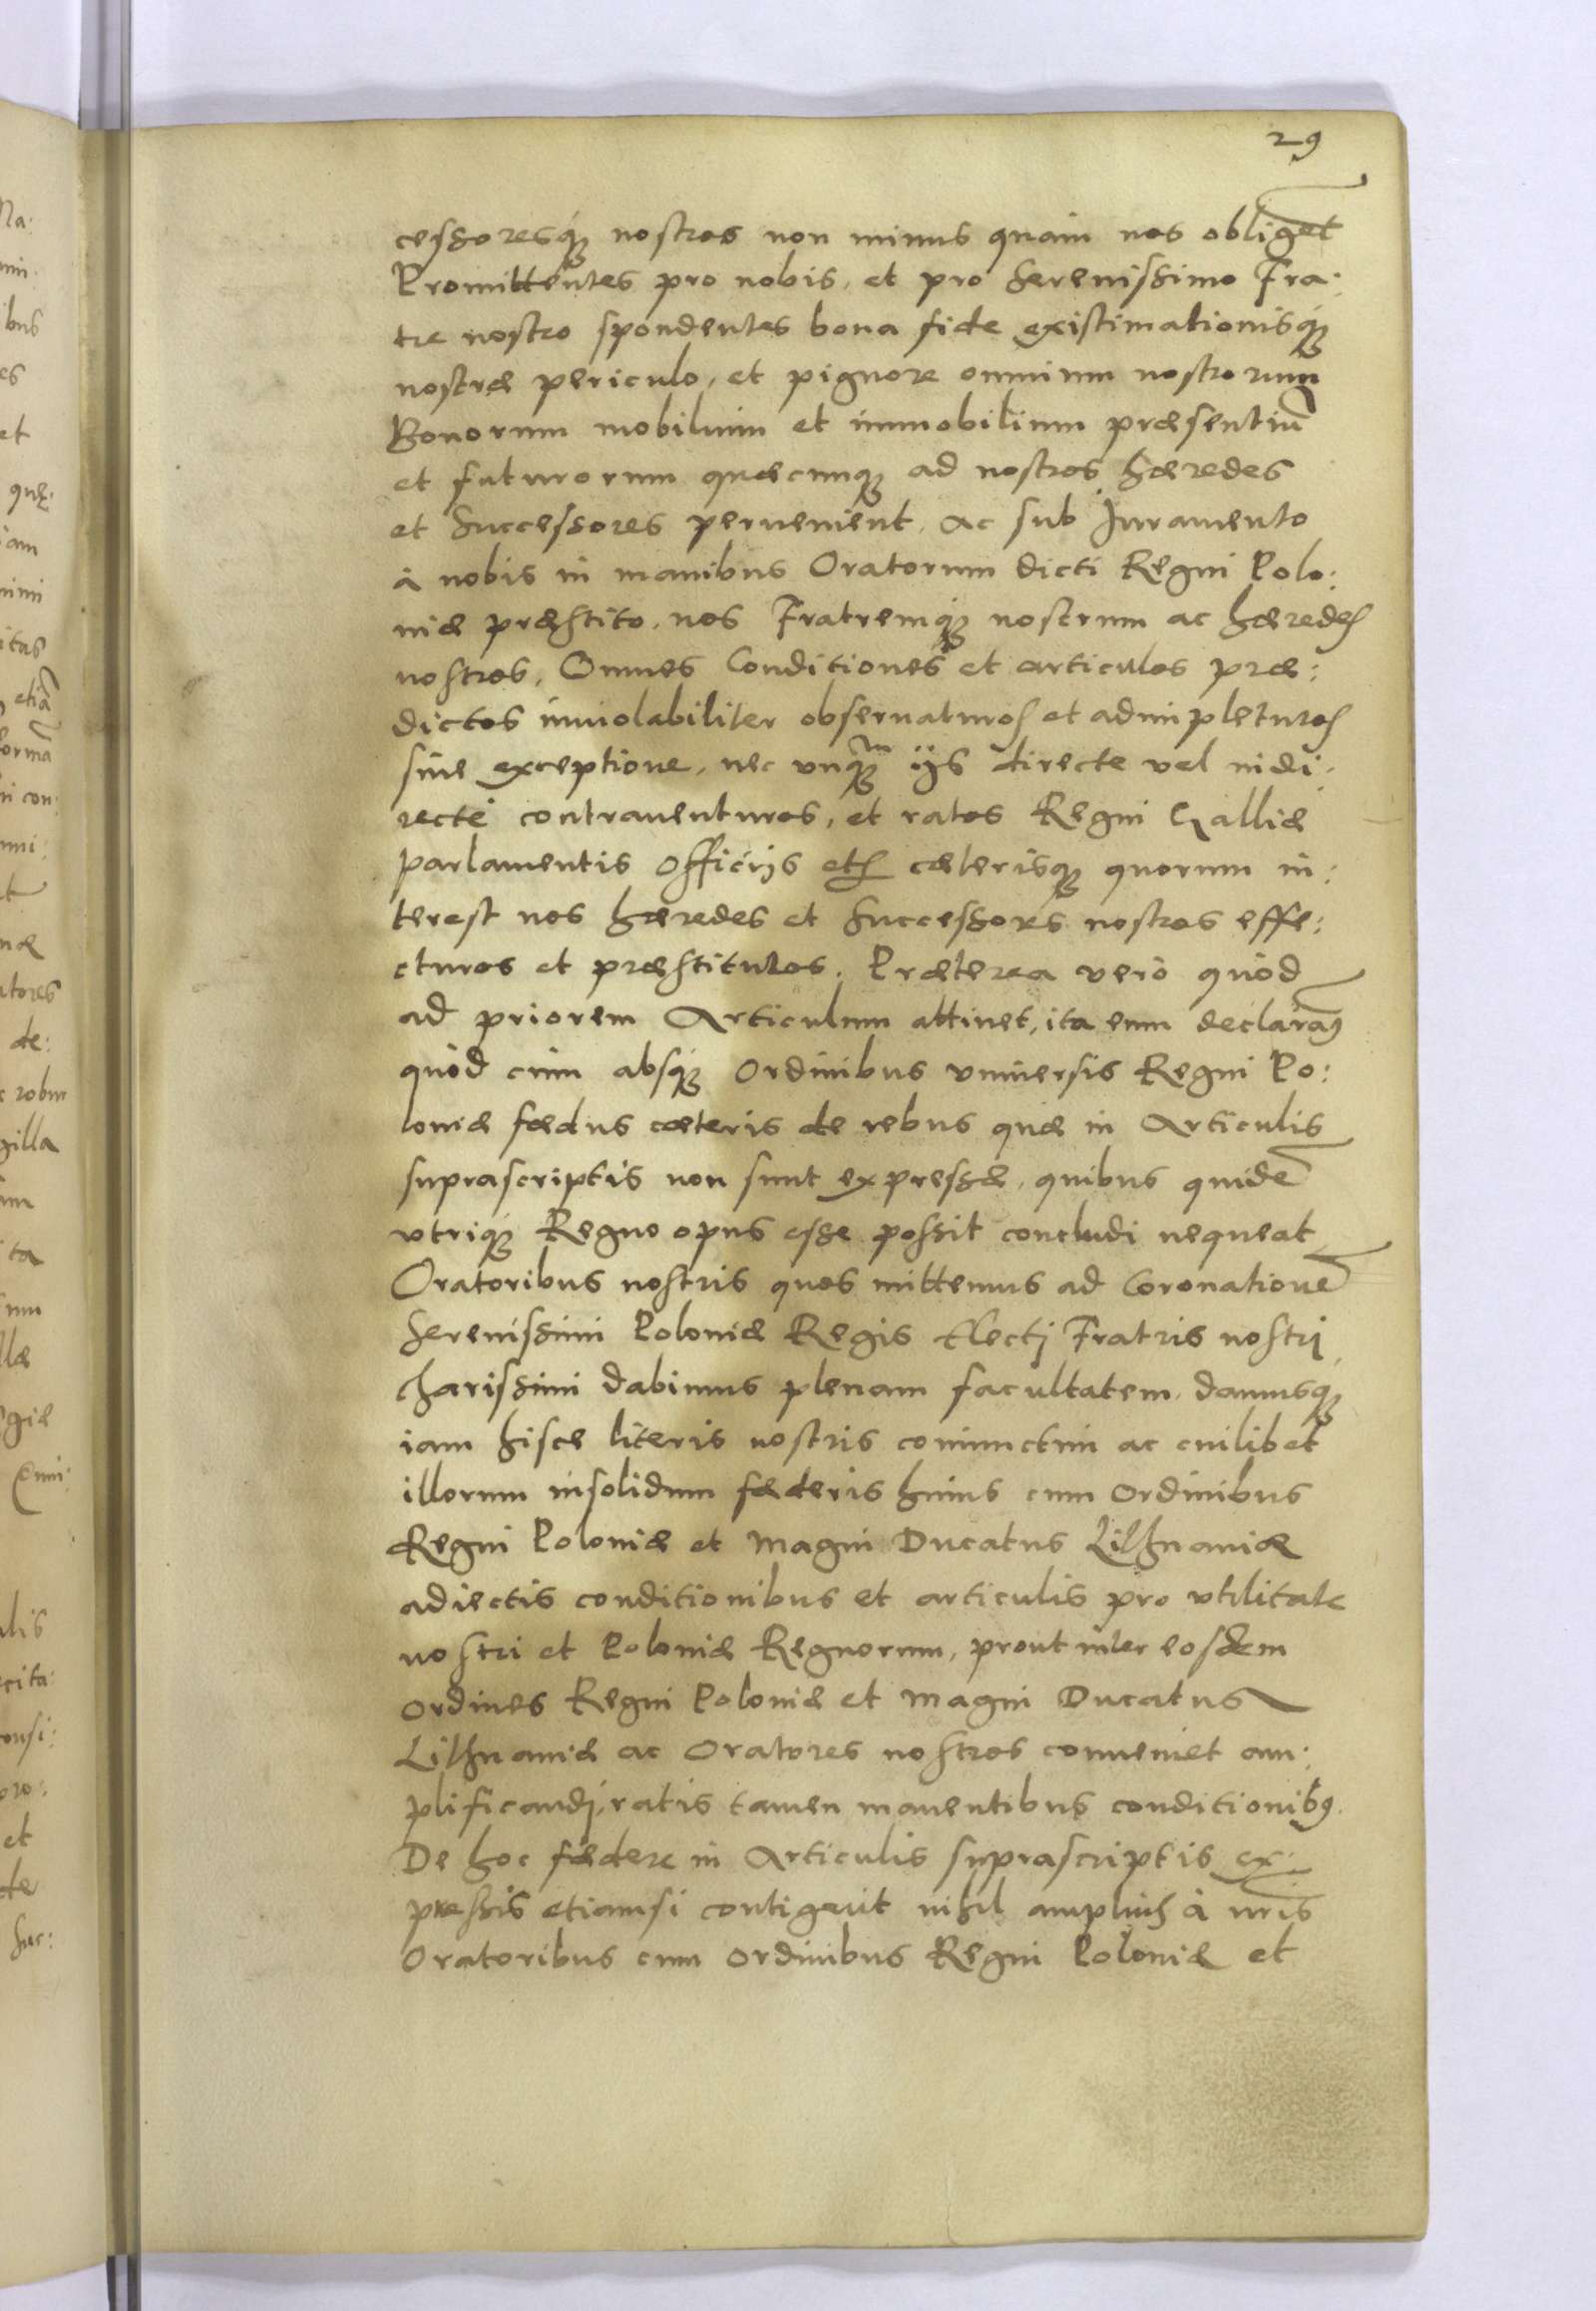 29
cessoresq́ꝫ nostros non minus quàm nos obliget
Promittentes pro nobis, et pro Serenissimo Fra:
tre nostro spondentes bona fide existimationisq́ꝫ
nostræ periculo, et pignore omnium nostrorum
Bonorum mobilium et immobilium præsentiũ
et futurorum quæcunqꝫ ad nostros hæredes
et Successores peruenient, ac sub Juramento
à nobis in manibus Oratorum dicti Regni Polo:
niæ præstito, nos Fratremq́ꝫ nostrum ac hæredes
nostros, Omnes Conditiones et articulos præ:
dictos inuiolabiliter obseruaturos et adimpleturos
sine exceptione, nec vnqꝫᵐ ijs directe vel indi:
recte contrauenturos, et ratos Regni Galliæ
parlamentis officijs etc cæterisqꝫ quorum in:
terest nos hæredes et Successors nostros effe:
cturos et præstituros. Præterea verò quòd
ad priorem Articulum attinet, ita eum declaramꝰ
quòd cùm absq́ꝫ Ordinibus vniuersis Regni Po:
loniæ fœdus cæteris de rebus quæ in Articulis
suprascriptis non sunt expressæ, quibus quidẽ
vtriq́ꝫ Regno opus esse possit concludi nequeat
Oratoribus nostris quos mittemus ad Coronationẽ
Serenissimi Poloniæ Regis Electj Fratris nostrj
charissimi dabimus plenam facultatem, damusqꝫ
iam hisce literis nostris coniunctim ac cuilibet
illorum insolidum fœderis huius cum Ordinibus
Regni Poloniæ et Magni Ducatus Lithuaniæ
adiectis conditionibus et articulis pro vtilitate
nostri et Poloniæ Regnorum, prout inter eosdem
Ordines Regni Poloniæ et Magni Ducatus
Lithuaniæ ac Oratores nostros conueniet am:
plificandj, ratis tamen manentibus conditionibꝰ.
De hoc fœdere in Articulis suprascriptis ex:
pressis etiamsi contigerit nihil amplius à nr̃is
Oratoribus cum Ordinibus Regni Poloniæ et